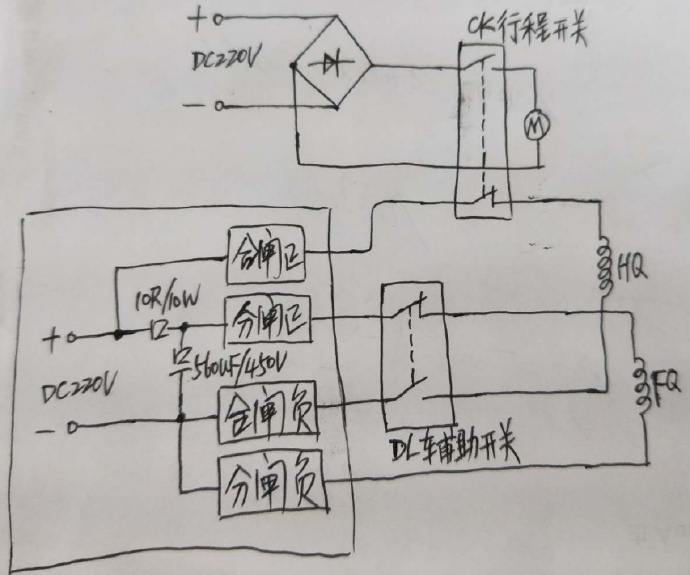 +
CK行程开关
DC220V
-
M
合闸正
HQ
10R/10W
分闸正
+
560UF/450V
DC220V
合闸负
FQ
-
DL车辅助开关
分闸负